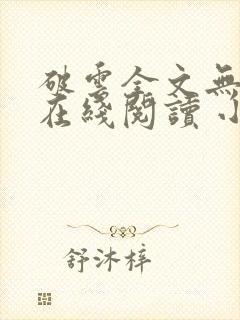 破雲全文無
在綫閱讀
舒沐梓